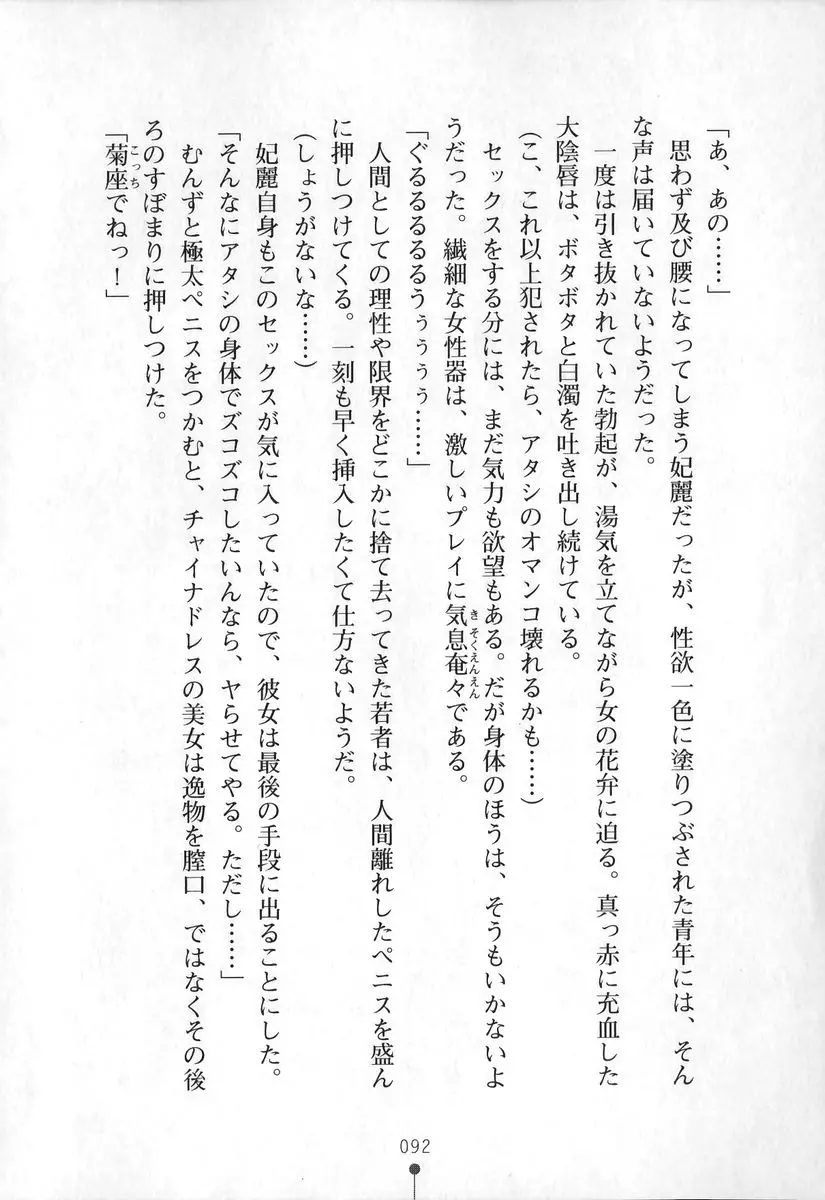 「あ、あの……」
　思わず及び腰になってしまう妃麗だったが、性欲一色に塗りつぶされた青年には、そん
な声は届いていないようだった。
　一度は引き抜かれていた勃起が、湯気を立てながら女の花弁に迫る。真っ赤に充血した
大陰唇は、ボタボタと白濁を吐き出し続けている。
（こ、これ以上犯されたら、アタシのオマンコ壊れるかも……）
　セックスをする分には、まだ気力も欲望もある。だが身体のほうは、そうもいかないよ
うだった。繊細な女性器は、激しいプレイに気息奄々きそくえんえんである。
「ぐるるるるるうぅぅぅ……」
　人間としての理性や限界をどこかに捨て去ってきた若者は、人間離れしたペニスを盛ん
に押しつけてくる。一刻も早く挿入したくて仕方ないようだ。
（しょうがないな……）
　妃麗自身もこのセックスが気に入っていたので、彼女は最後の手段に出ることにした。
「そんなにアタシの身体でズコズコしたいんなら、ヤらせてやる。ただし……」
　むんずと極太ペニスをつかむと、チャイナドレスの美女は逸物を膣口、ではなくその後
ろのすぼまりに押しつけた。
「菊座こっちでねっ！」
092